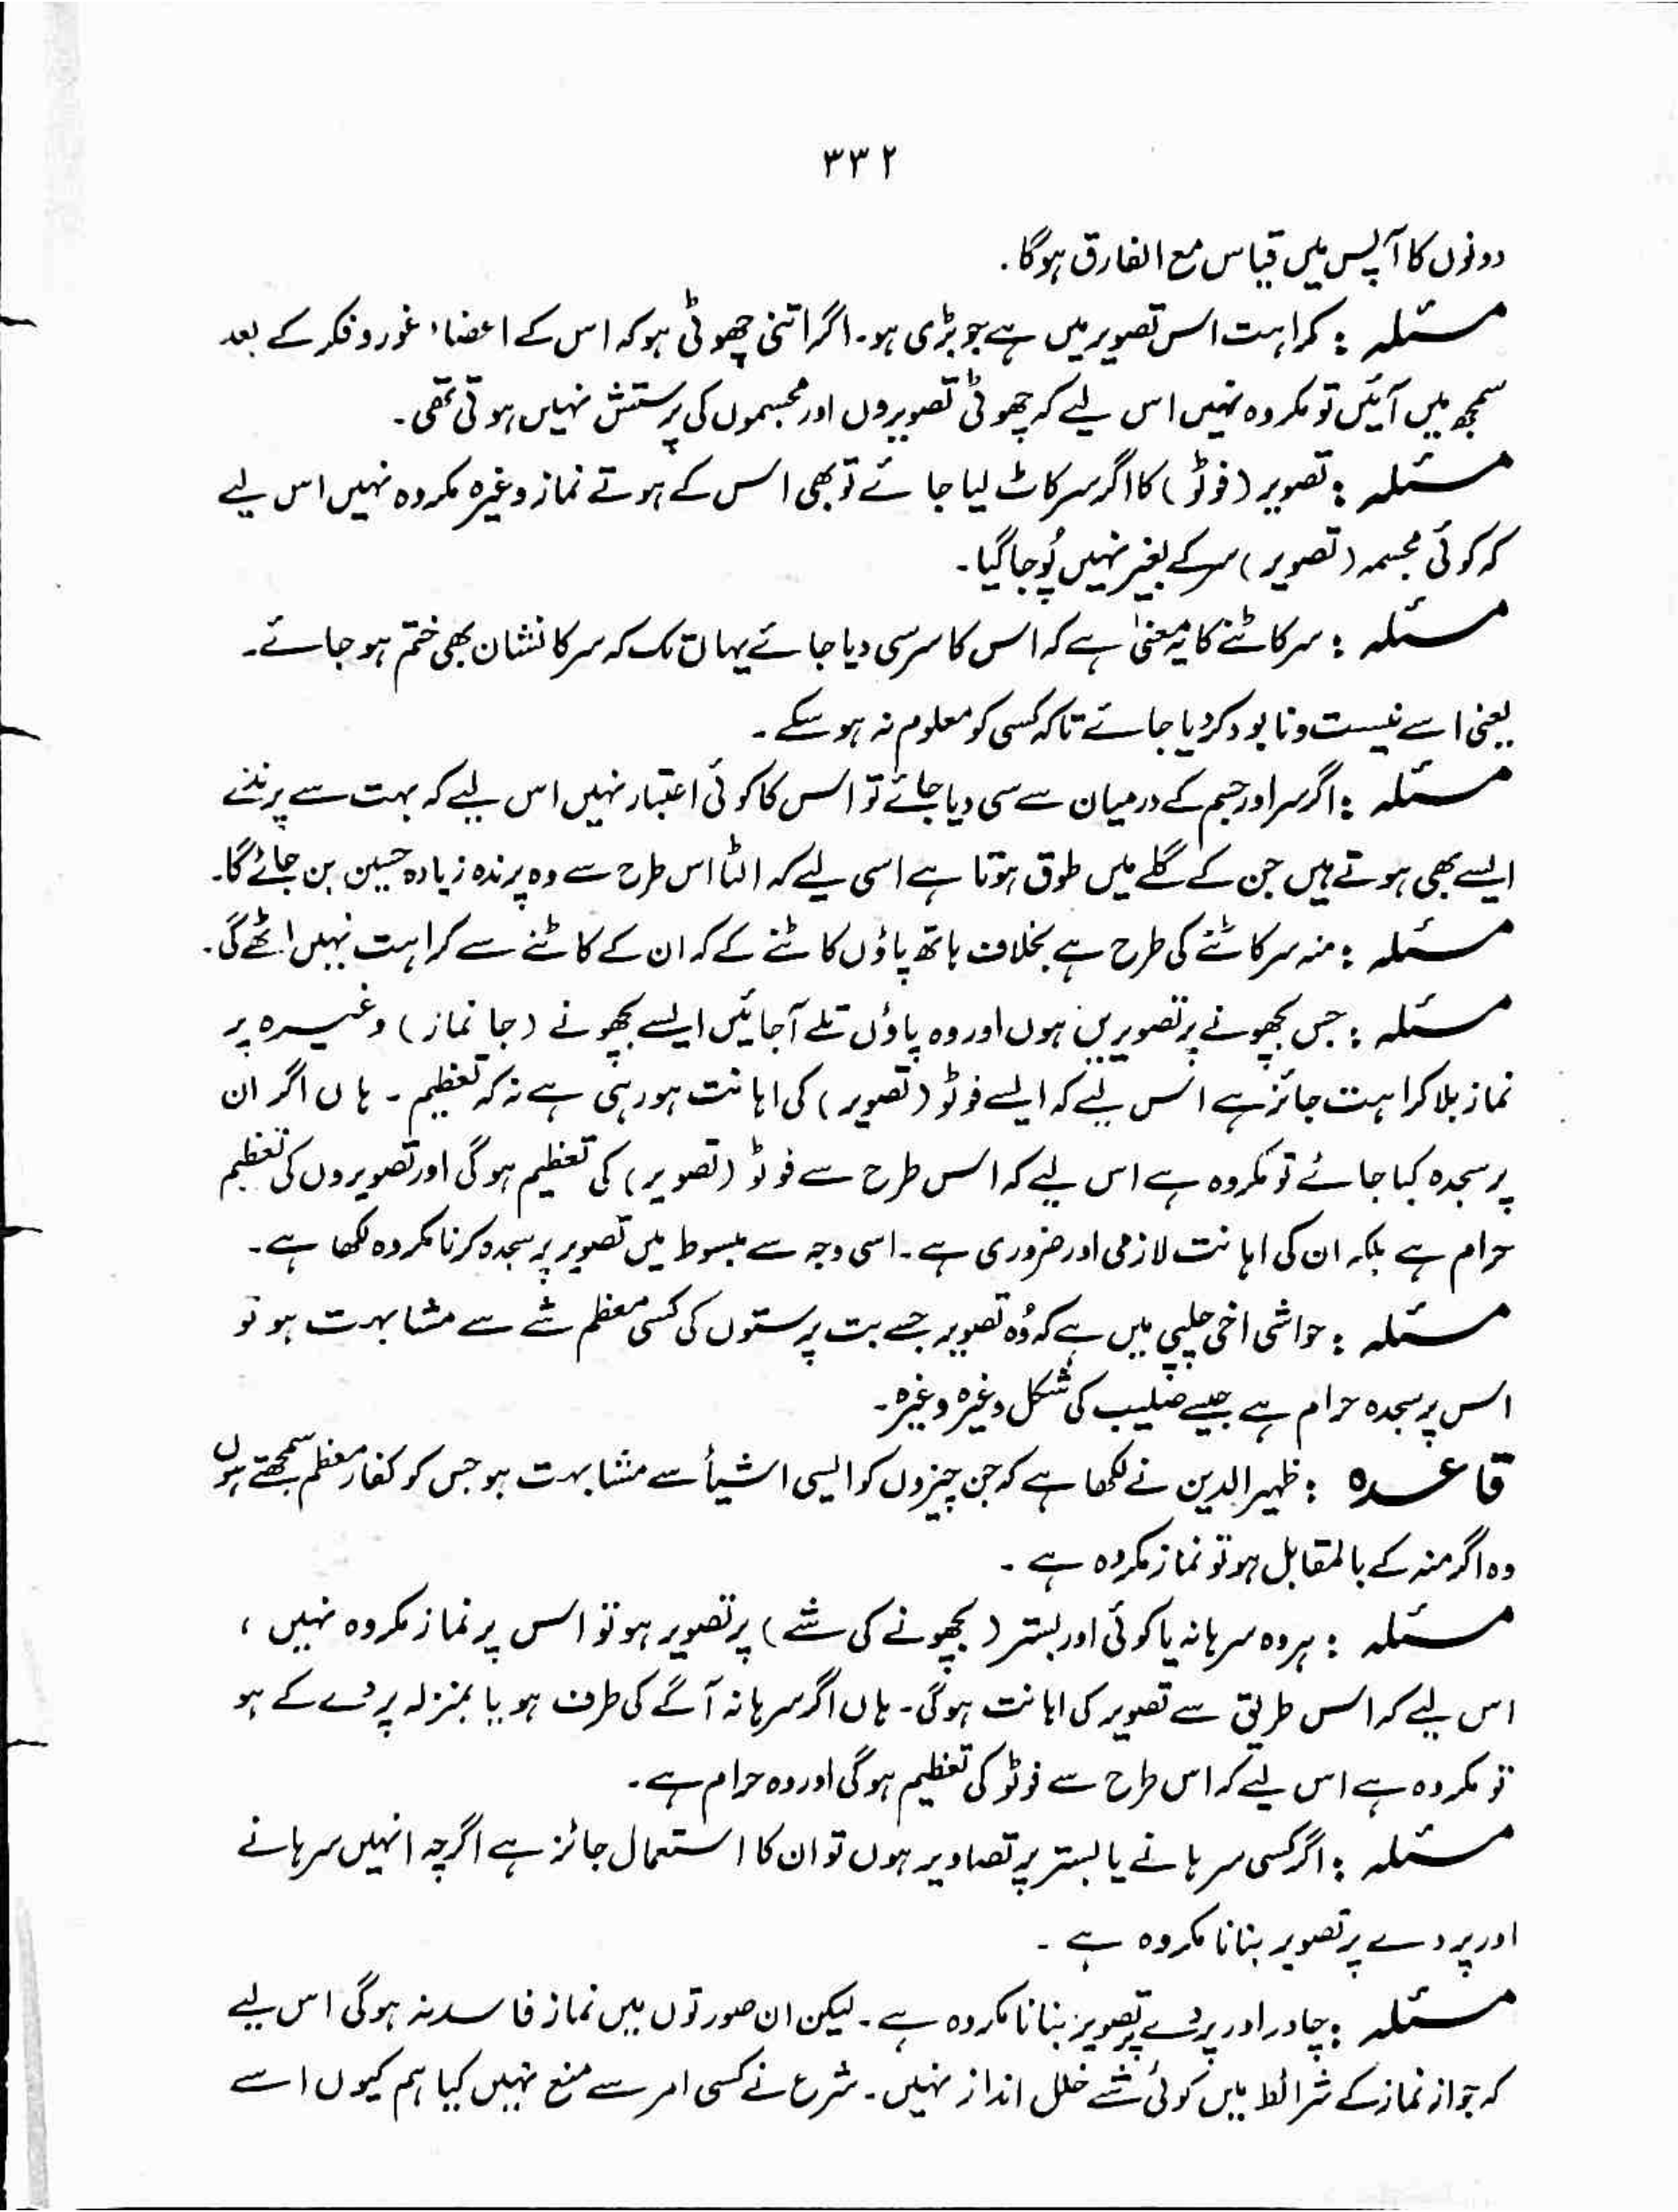 ۳۳۲
دونوں کا آپس میں قیاس مع الفارق ہوگا۔
مسئلہ : کراہت اس تصویر میں ہے جو بڑی ہو۔ اگر اتنی چھوٹی ہو کہ اس کے اعضاء غور و فکر کے بعد
سمجھ میں آئیں تو مکروہ نہیں اس لیے کہ چھوٹی تصویروں اور مجسموں کی پرستش نہیں ہوتی تھی۔
مسئلہ : تصویر (فوٹو) کا اگر سر کاٹ لیا جائے تو بھی اس کے ہوتے نماز وغیرہ مکروہ نہیں اس لیے
کہ کوئی مجسمہ (تصویر) سر کے بغیر نہیں پُوجا گیا۔
مسئلہ : سر کاٹنے کا یہ معنیٰ ہے کہ اس کا سر سی دیا جائے یہاں تک کہ سر کا نشان بھی ختم ہو جائے۔
یعنی اسے نیست و نابود کر دیا جائے تاکہ کسی کو معلوم نہ ہو سکے۔
مسئلہ : اگر سر اور جسم کے درمیان سے سی دیا جائے تو اس کا کوئی اعتبار نہیں اس لیے کہ بہت سے پرندے
ایسے بھی ہوتے ہیں جن کے گلے میں طوق ہوتا ہے اسی لیے کہ الٹا اس طرح سے وہ پرندہ زیادہ حسین بن جائے گا۔
مسئلہ : منہ سر کاٹنے کی طرح ہے بخلاف ہاتھ پاؤں کاٹنے کے کہ ان کے کاٹنے سے کراہت نہیں اٹھے گی۔
مسئلہ : جس بچھونے پر تصویریں ہوں اور وہ پاؤں تلے آ جائیں ایسے بچھونے (جا نماز) وغیرہ پر
نماز بلا کراہت جائز ہے اس لیے کہ ایسے فوٹو (تصویر) کی اہانت ہو رہی ہے نہ کہ تعظیم۔ ہاں اگر ان
پر سجدہ کیا جائے تو مکروہ ہے اس لیے کہ اس طرح سے فوٹو (تصویر) کی تعظیم ہوگی اور تصویروں کی تعظیم
حرام ہے بلکہ ان کی اہانت لازمی اور ضروری ہے۔ اسی وجہ سے مبسوط میں تصویر پر سجدہ کرنا مکروہ لکھا ہے۔
مسئلہ : حواشی اخی چلپی میں ہے کہ وُہ تصویر جسے بت پرستوں کی کسی معظم شے سے مشابہت ہو تو
اس پر سجدہ حرام ہے جیسے صلیب کی شکل وغیرہ وغیرہ۔
قاعدہ : ظہیر الدین نے لکھا ہے کہ جن چیزوں کو ایسی اشیأ سے مشابہت ہو جس کو کفار معظم سمجھتے ہوں
وہ اگر منہ کے بالمقابل ہو تو نماز مکروہ ہے۔
مسئلہ : ہر وہ سرہانہ یا کوئی اور بستر (بچھونے کی شے) پر تصویر ہو تو اس پر نماز مکروہ نہیں ،
اس لیے کہ اس طریق سے تصویر کی اہانت ہوگی۔ ہاں اگر سرہانہ آگے کی طرف ہو یا بمنزلہ پردے کے ہو
تو مکروہ ہے اس لیے کہ اس طرح سے فوٹو کی تعظیم ہوگی اور وہ حرام ہے۔
مسئلہ : اگر کسی سرہانے یا بستر پر تصاویر ہوں تو ان کا استعمال جائز ہے اگرچہ انہیں سرہانے
اور پردے پر تصویر بنانا مکروہ ہے۔
مسئلہ : چادر اور پردے پر تصویر بنانا مکروہ ہے۔ لیکن ان صورتوں میں نماز فاسد نہ ہوگی اس لیے
کہ جواز نماز کے شرائط میں کوئی شے خلل انداز نہیں۔ شرع نے کسی امر سے منع نہیں کیا ہم کیوں اسے